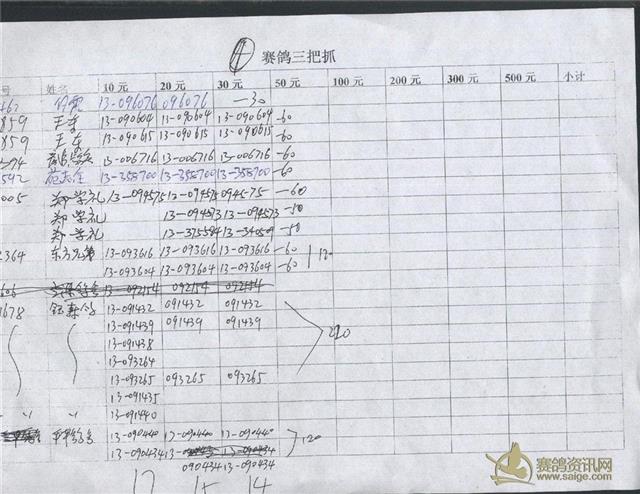 ④ 赛鸽三把抓
号 姓名 10元 20元 30元 50元 100元 200元 300元 500元 小计
13-096076 096076 —30
859 王东 13-090604 13-090604 13-090604 -60
859 王东 13-090615 13-090615 13-090615 -60
13-006716 13-006716 13-006716 -60
13-358700 13-358700 13-358700 -60
005 郑学礼 13-094575 13-094575 094575 -60
郑学礼 13-094573 13-094573 -50
郑学礼 13-375584 13-340509 -50
2364 东方兄弟 13-093616 13-093616 13-093616 -60
13-093604 13-093604 13-093604 -60 120
606 13-092154 092154 092154
1678 13-091432 091432 091432
13-091439 091439 091439 210
13-091438
13-093264
13-093265 093265 093265
13-091435
13-091440
13-090440 13-090440 13-090440 120
13-090434
090434 13-090434
17 15 14
赛鸽资讯网
www.saige.com